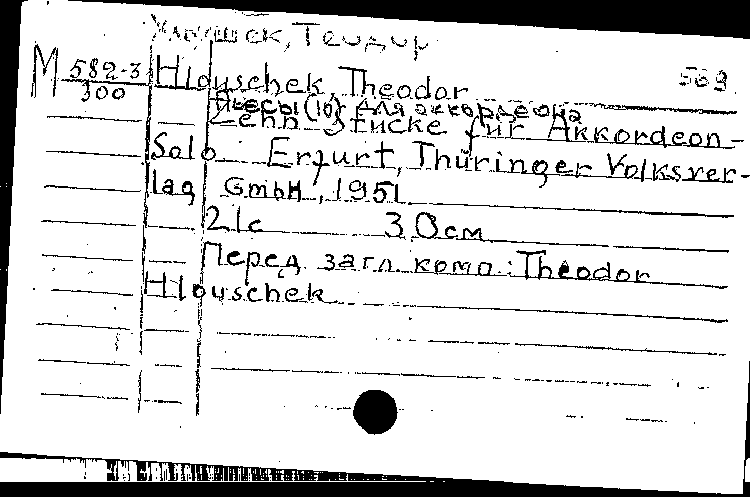 Хлоушек, Теодор
M 582-3 Hlouschek, Theodor 569
300 Пьесы (10) для аккордеона
Zehn Stücke für Akkordeon-
Solo. Erfurt, Thüringer Volksver-
lag GmbH, 1951
21с 30см
Перед загл. комп.: Theodor
Hlouschek